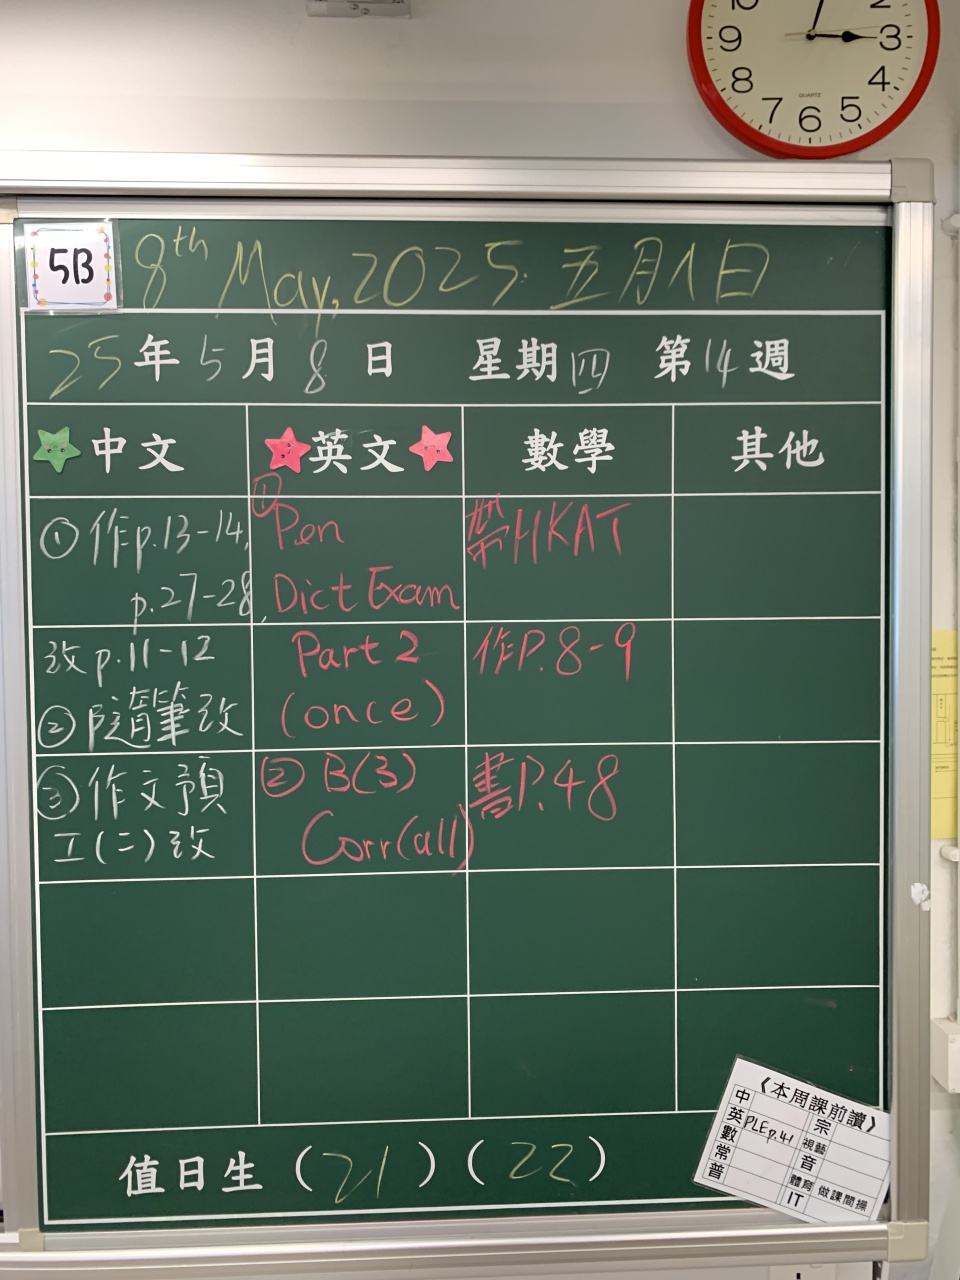 10 2
9 3
8 4
7 6 5
QUARTZ
5B
8th May, 2025. 五月八日
25年5月8日 星期四 第14週
中文 英文 數學 其他
① 作p.13-14,
p.27-28,
改p.11-12
② 隨筆改
③ 作文預
工(二)改
① Pen
Dict Exam
Part 2
(once)
② B(3)
Corr(all)
帶HKAT
作P.8-9
書P.48
值日生 (21) (22)
《本周課前讀》
中 宗
英 PLE p.41 視藝
數 音
常 體育 做課間操
普 IT